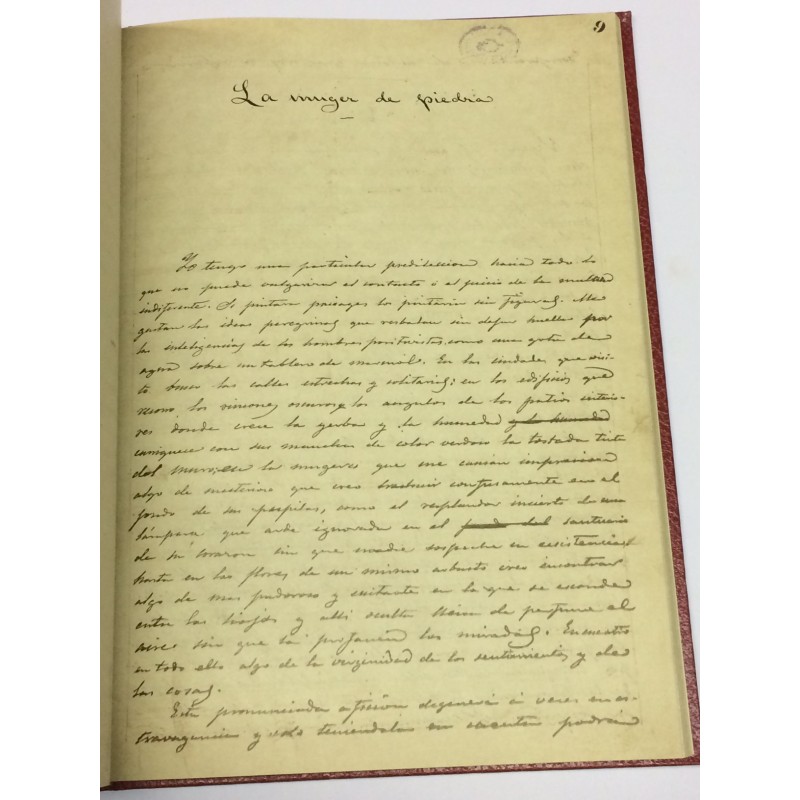 9
La muger de piedra
Yo tengo una particular predileccion hacia todo lo
que no puede vulgarizar el contacto ó el juicio de la multitud
indiferente. Si pintara paisages los pintaria sin figuras. Me
gustan las ideas peregrinas que resbalan sin dejar huella por
las inteligencias de los hombres positivistas, como una gota de
agua sobre un tablero de marmol. En las ciudades que visi-
to busco las calles estrechas y solitarias; en los edificios que
recorro los rincones oscuros y los angulos de los patios interio-
res donde crece la yerba y la humedad y la humeda
enriquece con sus manchas de color verdoso la tostada tinta
del muro; en las mugeres que me causan impresion
algo de misterioso que creo traslucir confusamente en el
fondo de sus pupilas, como el resplandor incierto de una
lámpara que arde ignorada en el santuario
de su corazon sin que nadie sospeche su existencia;
hasta en las flores de un mismo arbusto creo encontrar
algo de mas pudoroso y exitante en la que se esconde
entre las hojas y alli oculta llena de perfume el
aire sin que la profanen las miradas. Encuentro
en todo ello algo de la virginidad de los sentimientos y de
las cosas.
Esta pronunciada aficion degenera á veces en es-
travagancia y solo teniendola en cuenta podrá